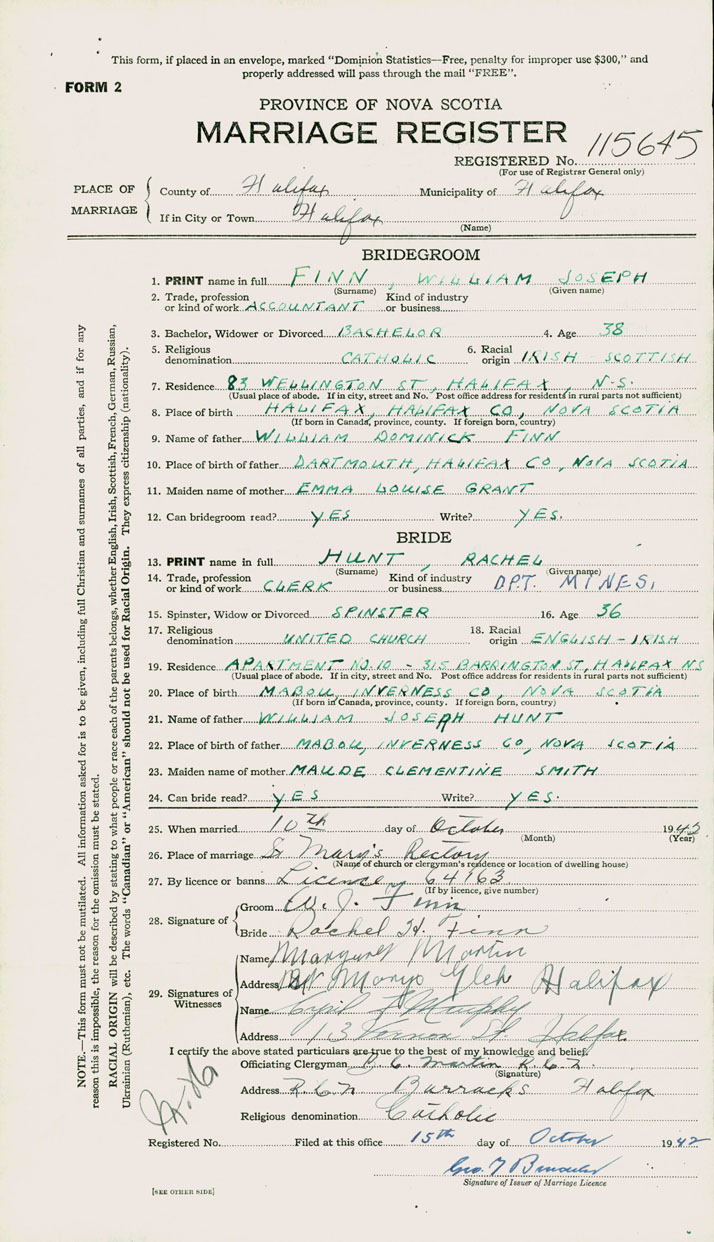 This form, if placed in an envelope, marked "Dominion Statistics—Free, penalty for improper use $300," and
properly addressed will pass through the mail "FREE".
FORM 2
PROVINCE OF NOVA SCOTIA
MARRIAGE REGISTER
REGISTERED No. 115645
(For use of Registrar General only)
PLACE OF MARRIAGE
County of Halifax Municipality of Halifax
If in City or Town Halifax
(Name)
BRIDEGROOM
1. PRINT name in full FINN, WILLIAM JOSEPH
(Surname) (Given name)
2. Trade, profession or kind of work ACCOUNTANT Kind of industry or business
3. Bachelor, Widower or Divorced BACHELOR 4. Age 38
5. Religious denomination CATHOLIC 6. Racial origin IRISH - SCOTTISH
7. Residence 83 WELLINGTON ST, HALIFAX, N.S.
(Usual place of abode. If in city, street and No. Post office address for residents in rural parts not sufficient)
8. Place of birth HALIFAX, HALIFAX CO, NOVA SCOTIA
(If born in Canada, province, county. If foreign born, country)
9. Name of father WILLIAM DOMINICK FINN
10. Place of birth of father DARTMOUTH, HALIFAX CO, NOVA SCOTIA
11. Maiden name of mother EMMA LOUISE GRANT
12. Can bridegroom read? YES Write? YES.
BRIDE
13. PRINT name in full HUNT, RACHEL
(Surname) (Given name)
14. Trade, profession or kind of work CLERK Kind of industry or business DPT. MINES.
15. Spinster, Widow or Divorced SPINSTER 16. Age 36
17. Religious denomination UNITED CHURCH 18. Racial origin ENGLISH - IRISH
19. Residence APARTMENT NO. 10 - 315 BARRINGTON ST, HALIFAX NS
(Usual place of abode. If in city, street and No. Post office address for residents in rural parts not sufficient)
20. Place of birth MABOU, INVERNESS CO, NOVA SCOTIA
(If born in Canada, province, county. If foreign born, country)
21. Name of father WILLIAM JOSEPH HUNT
22. Place of birth of father MABOU, INVERNESS CO, NOVA SCOTIA
23. Maiden name of mother MAUDE CLEMENTINE SMITH
24. Can bride read? YES Write? YES.
25. When married 10th day of October 1942
(Month) (Year)
26. Place of marriage St Mary's Rectory
(Name of church or clergyman's residence or location of dwelling house)
27. By licence or banns Licence 64763
(If by licence, give number)
28. Signature of
Groom W. J. Finn
Bride Rachel H. Finn
29. Signatures of Witnesses
Name Margaret Martin
Address St Marys Glebe Halifax
Name Cyril F Murphy
Address 13 Vernon St Halifax
I certify the above stated particulars are true to the best of my knowledge and belief.
Officiating Clergyman Martin R.C.N.
(Signature)
Address R.C.N Barracks Halifax
Religious denomination Catholic
Registered No. Filed at this office 15th day of October 1942
Geo. T
Signature of Issuer of Marriage Licence
[SEE OTHER SIDE]
NOTE.—This form must not be mutilated. All information asked for is to be given, including full Christian and surnames of all parties, and if for any
reason this is impossible, the reason for the omission must be stated.
RACIAL ORIGIN will be described by stating to what people or race each of the parents belongs, whether English, Irish, Scottish, French, German, Russian,
Ukrainian (Ruthenian), etc. The words "Canadian" or "American" should not be used for Racial Origin. They express citizenship (nationality).